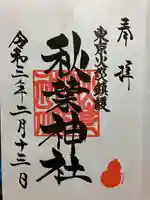 奉拝
東京火防鎮護
秋葉神社
令和三年二月十三日